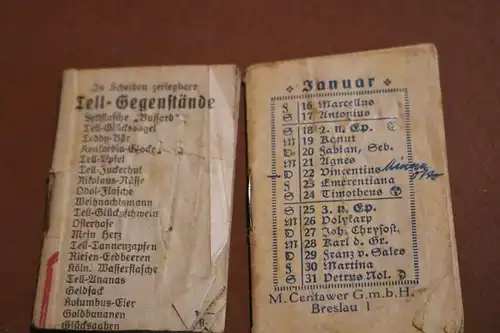 In Scheiben zerlegbare
Tell-Gegenstände
Sektflasche „Bussard"
Tell-Glücksvogel
Teddy-Bär
Konkordia-Glocke
Tell-Apfel
Tell-Zuckerhut
Nikolaus-Nüsse
Odol-Flasche
Weihnachtsmann
Tell-Glückschwein
Osterhase
Mein Herz
Tell-Tannenzapfen
Riesen-Erdbeeren
Köln. Wasserflasche
Tell-Ananas
Geldsack
Kolumbus-Eier
Goldbananen
Glücksgaben
Januar
F 16 Marcellus
S 17 Antonius
S 18 2. n. Ep.
M 19 Kanut
D 20 Fabian, Seb.
M 21 Agnes
D 22 Vincentius
F 23 Emerentiana
S 24 Timotheus
S 25 3. n. Ep.
M 26 Polykarp
D 27 Joh. Chrysost.
M 28 Karl d. Gr.
D 29 Franz v. Sales
F 30 Martina
S 31 Petrus Nol.
M. Centawer G.m.b.H.
Breslau 1